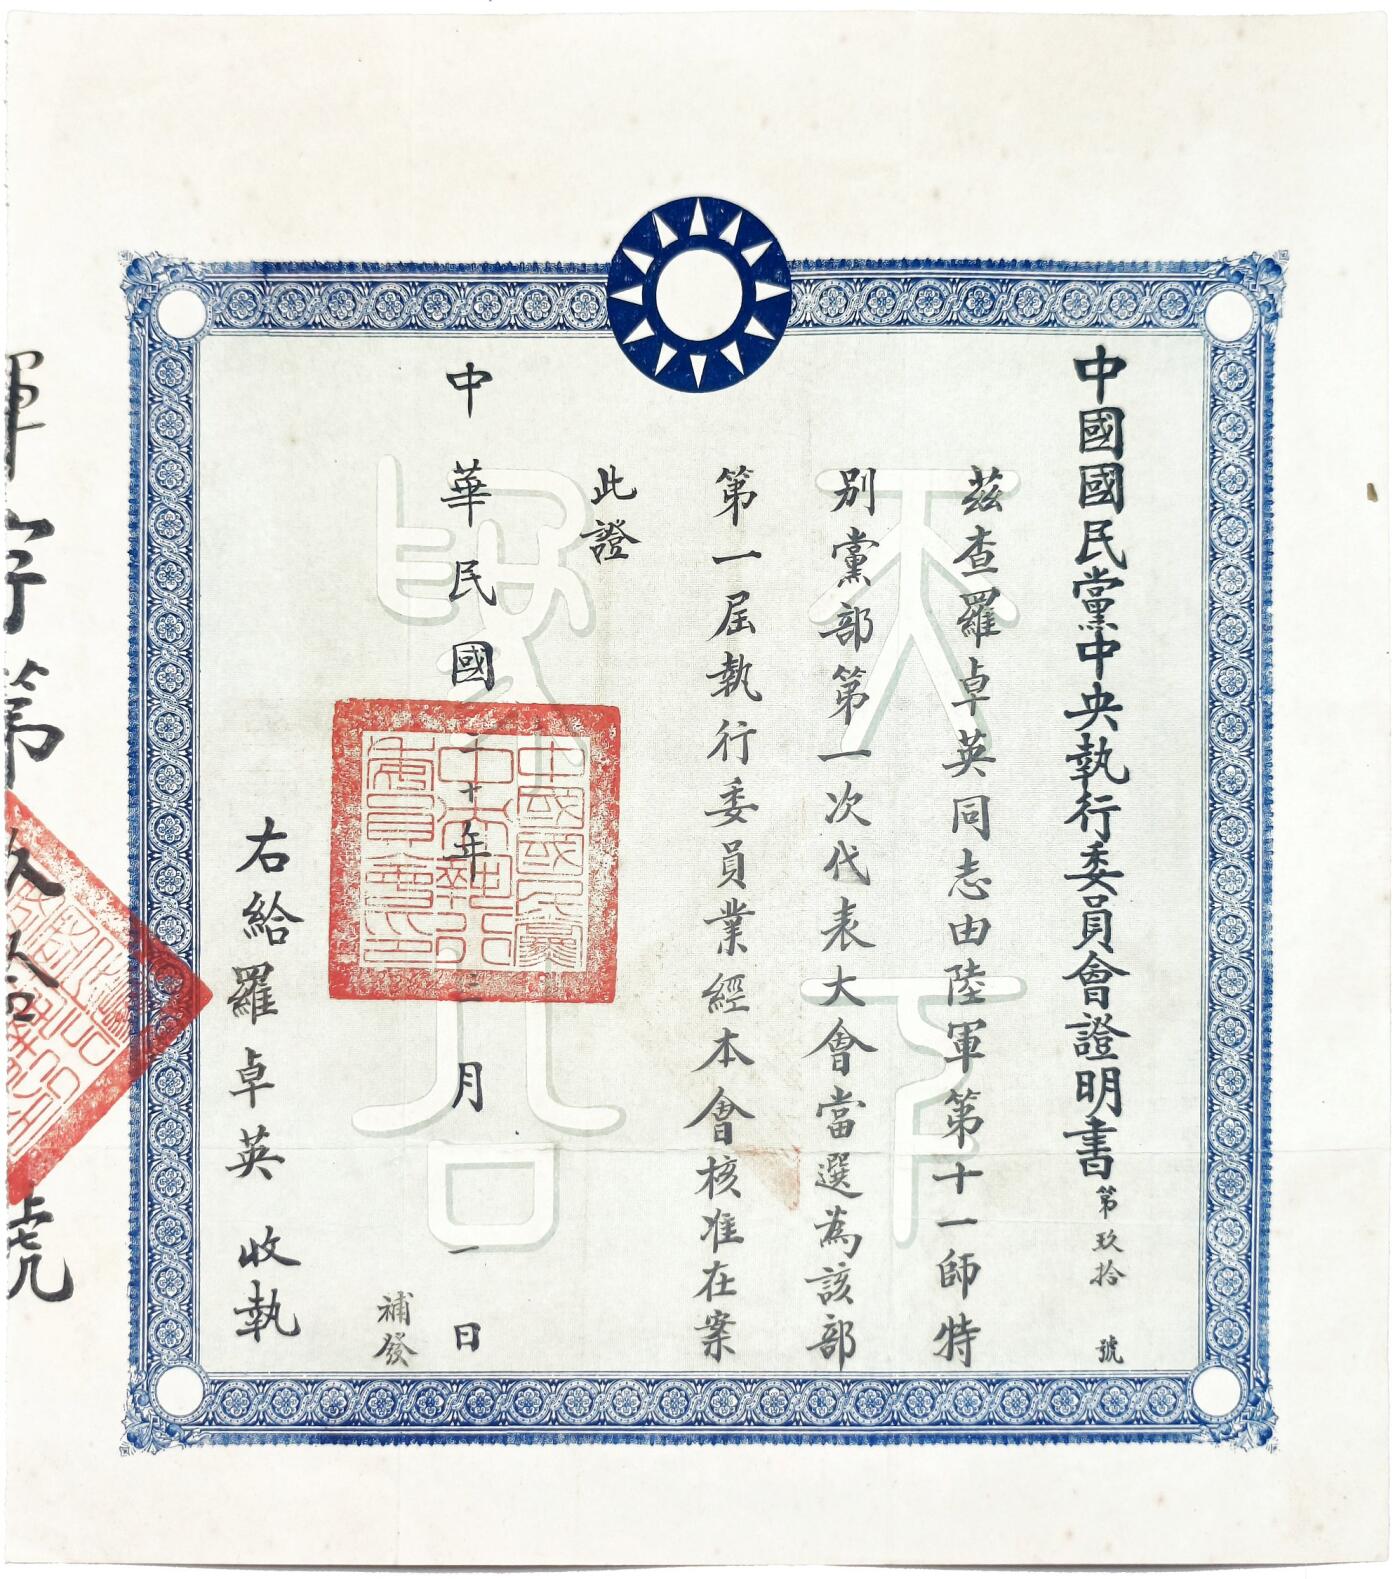 中國國民黨中央執行委員會證明書 第玖拾號
茲查羅卓英同志由陸軍第十一師特
別黨部第一次代表大會當選為該部
第一屆執行委員業經本會核准在案
此證
中華民國二十年三月一日
補發
右給羅卓英 收執
天下為公
中國國民黨中央執行委員會印
字第玖拾號